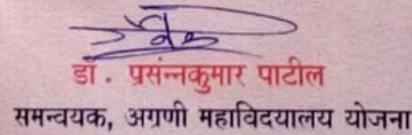 डॉ. प्रसंन्नकुमार पाटील
समन्वयक, अग्रणी महाविदयालय योजना